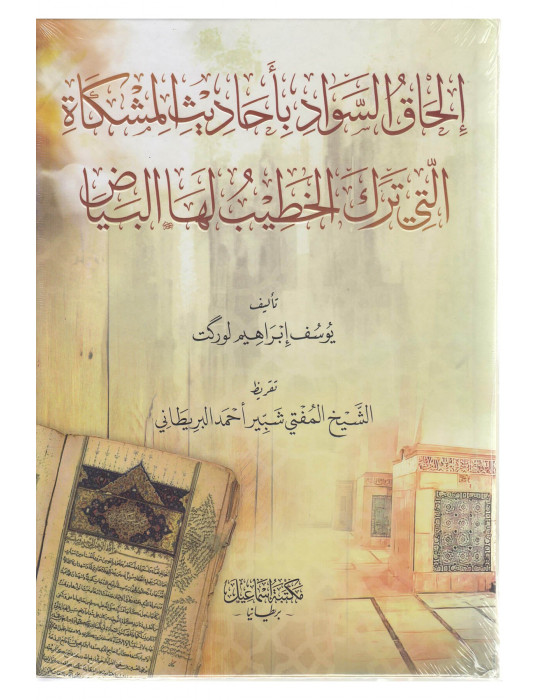 إلحَاقُ السَّوَادِ بِأَحَادِيثِ المِشْكَاةِ
الَّتِي تَرَكَ الخَطِيْبُ لَهَا البَيَاضَ
تأليف
يُوسُف إِبْرَاهِيم لورگت
تقريظ
الشَّيْخ المُفْتِي شَبِّير أَحْمَد البريطَاني
مكتبة إسماعيل
- بريطانيا -